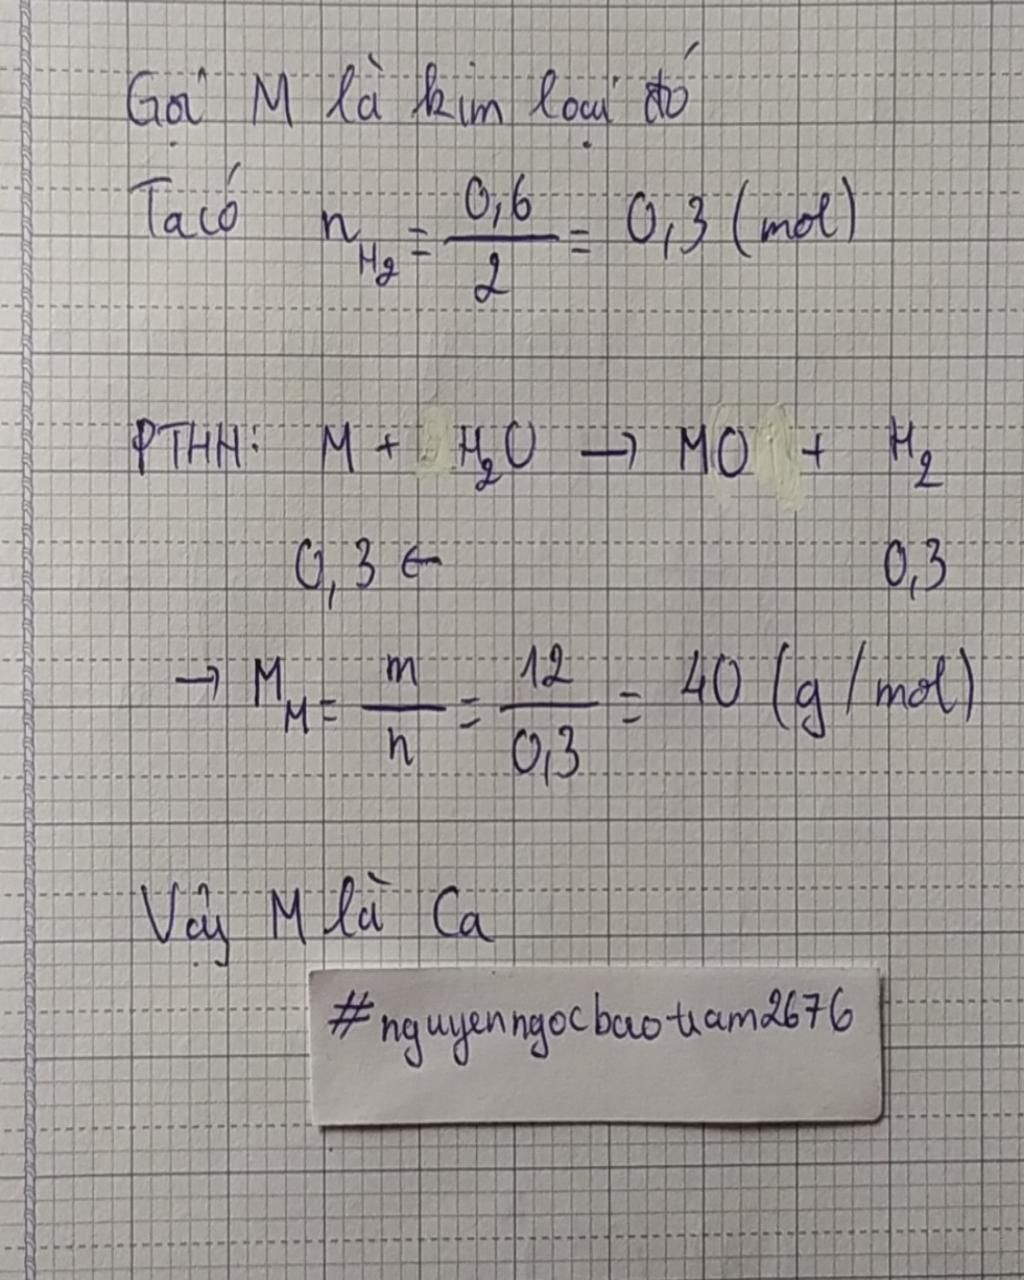 Gọi M là kim loại đó
Ta có n H₂ = 0,6 / 2 = 0,3 (mol)
PTHH: M + H₂O → MO + H₂
0,3 ← 0,3
→ M_M = m / n = 12 / 0,3 = 40 (g/mol)
Vậy M là Ca
#nguyenngocbaotram2676